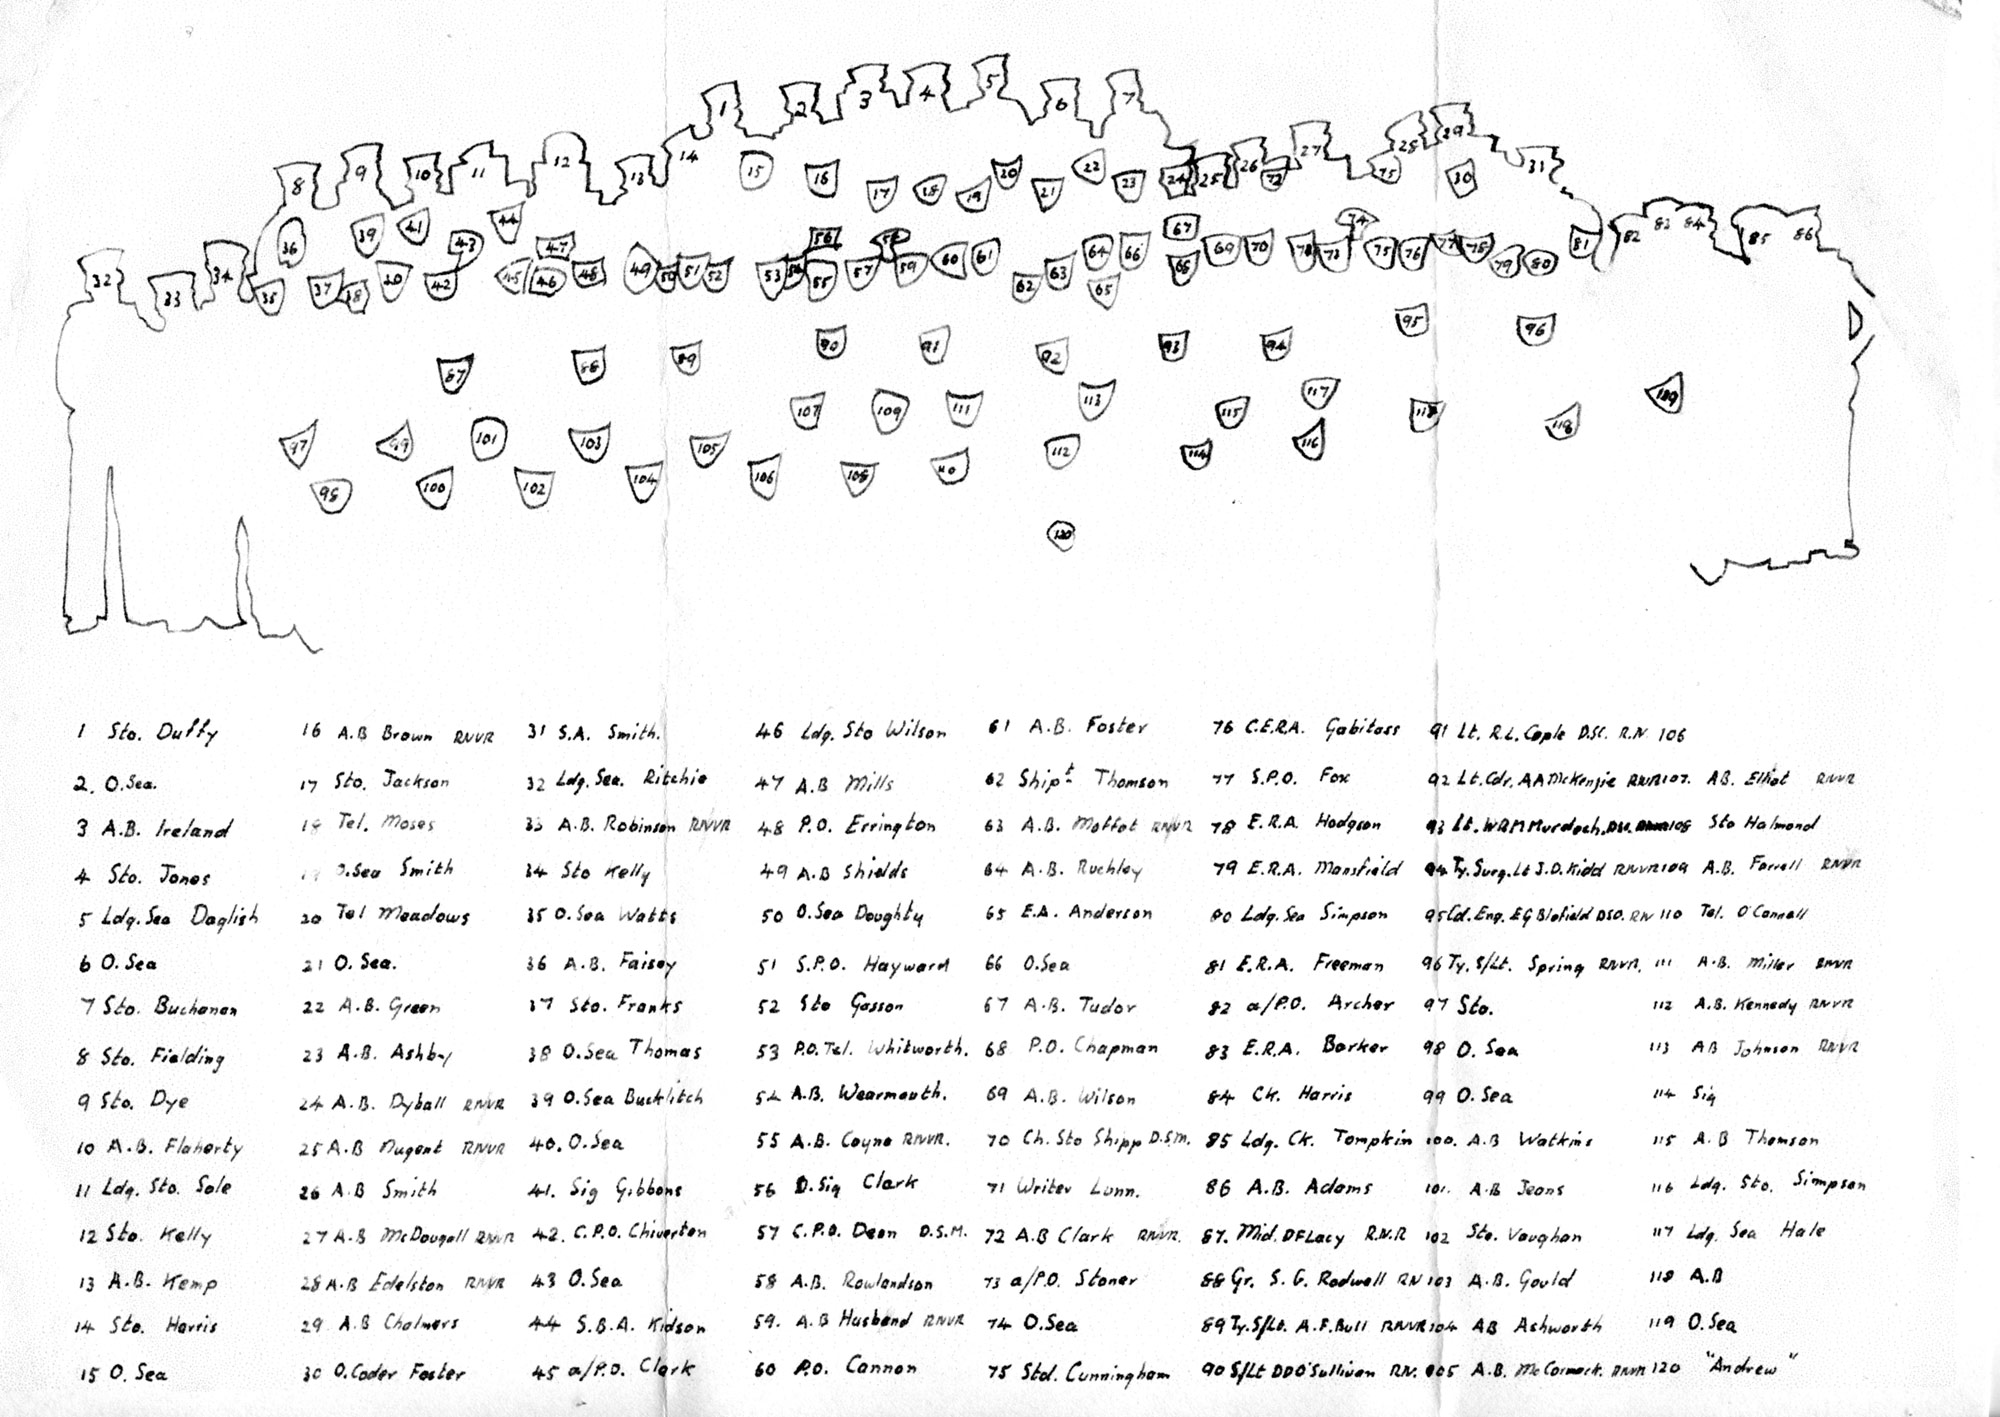 1 Sto. Duffy
2. O.Sea.
3 A.B. Ireland
4 Sto. Jones
5 Ldg. Sea Daglish
6 O. Sea
7 Sto. Buchanan
8 Sto. Fielding
9 Sto. Dye
10 A.B. Flaherty
11 Ldg. Sto. Sole
12 Sto. Kelly
13 A.B. Kemp
14 Sto. Harris
15 O. Sea
16 A.B Brown RNVR
17 Sto. Jackson
18 Tel. Moses
19 O.Sea Smith
20 Tel Meadows
21 O. Sea.
22 A.B. Green
23 A.B. Ashby
24 A.B. Dyball RNVR
25 A.B Nugent RNVR
26 A.B Smith
27 A.B McDougall RNVR
28 A.B Edelston RNVR
29 A.B Chalmers
30 O.Coder Foster
31 S.A. Smith.
32 Ldg. Sea. Ritchie
33 A.B. Robinson RNVR
34 Sto Kelly
35 O.Sea Watts
36 A.B. Faisey
37 Sto. Franks
38 O.Sea Thomas
39 O.Sea Bucklitch
40. O.Sea
41. Sig Gibbons
42. C.P.O. Chiverton
43 O.Sea
44 S.B.A. Kidson
45 a/P.O. Clark
46 Ldg. Sto Wilson
47 A.B Mills
48 P.O. Errington
49 A.B Shields
50 O.Sea Doughty
51 S.P.O. Hayward
52 Sto Gasson
53 P.O.Tel. Whitworth.
54 A.B. Wearmouth.
55 A.B. Coyne RNVR.
56 O.Sig Clark
57 C.P.O. Dean D.S.M.
58 A.B. Rowlandson
59. A.B Husband RNVR
60 P.O. Cannon
61 A.B. Foster
62 Shipt Thomson
63 A.B. Moffat RNVR
64 A.B. Ruchley
65 E.A. Anderson
66 O.Sea
67 A.B. Tudor
68 P.O. Chapman
69 A.B. Wilson
70 Ch. Sto Shipp D.S.M.
71 Writer Lunn.
72 A.B Clark RNVR.
73 a/P.O. Stoner
74 O.Sea
75 Std. Cunningham
76 C.E.R.A. Gabitass
77 S.P.O. Fox
78 E.R.A Hodgson
79 E.R.A. Mansfield
80 Ldg. Sea Simpson
81 E.R.A. Freeman
82 a/P.O. Archer
83 E.R.A. Barker
84 Ck. Harris
85 Ldg. Ck. Tompkin
86 A.B. Adams
87. Mid. DF Lacy R.N.R
88 Gr. S.G. Rodwell RN
89 Ty. S/Lt. A.F. Bull RNVR
90 S/Lt DDO'Sullivan RN.
91 Lt. R.L. Caple D.SC. R.N
92 Lt. Cdr. A A McKenzie RNR
93 Lt. W R M Murdoch. DSC.
94 Ty. Surg. Lt J.D. Kidd RNVR
95 Cd. Eng. E G Blofield DSO. RN
96 Ty. S/Lt. Spring RNVR.
97 Sto.
98 O. Sea
99 O. Sea
100. A.B Watkins
101. A.B Jeans
102 Sto. Vaughan
103 A.B. Gould
104 AB Ashworth
105 A.B. McCormack. RNVR
106
107. AB. Elliot RNVR
108 Sto Halmond
109 A.B. Farrell RNVR
110 Tel. O'Connell
111 A.B. Miller RNVR
112 A.B. Kennedy RNVR
113 AB Johnson RNVR
114 Sig
115 A.B Thomson
116 Ldg. Sto. Simpson
117 Ldg. Sea Hale
118 A.B
119 O.Sea
120 "Andrew"